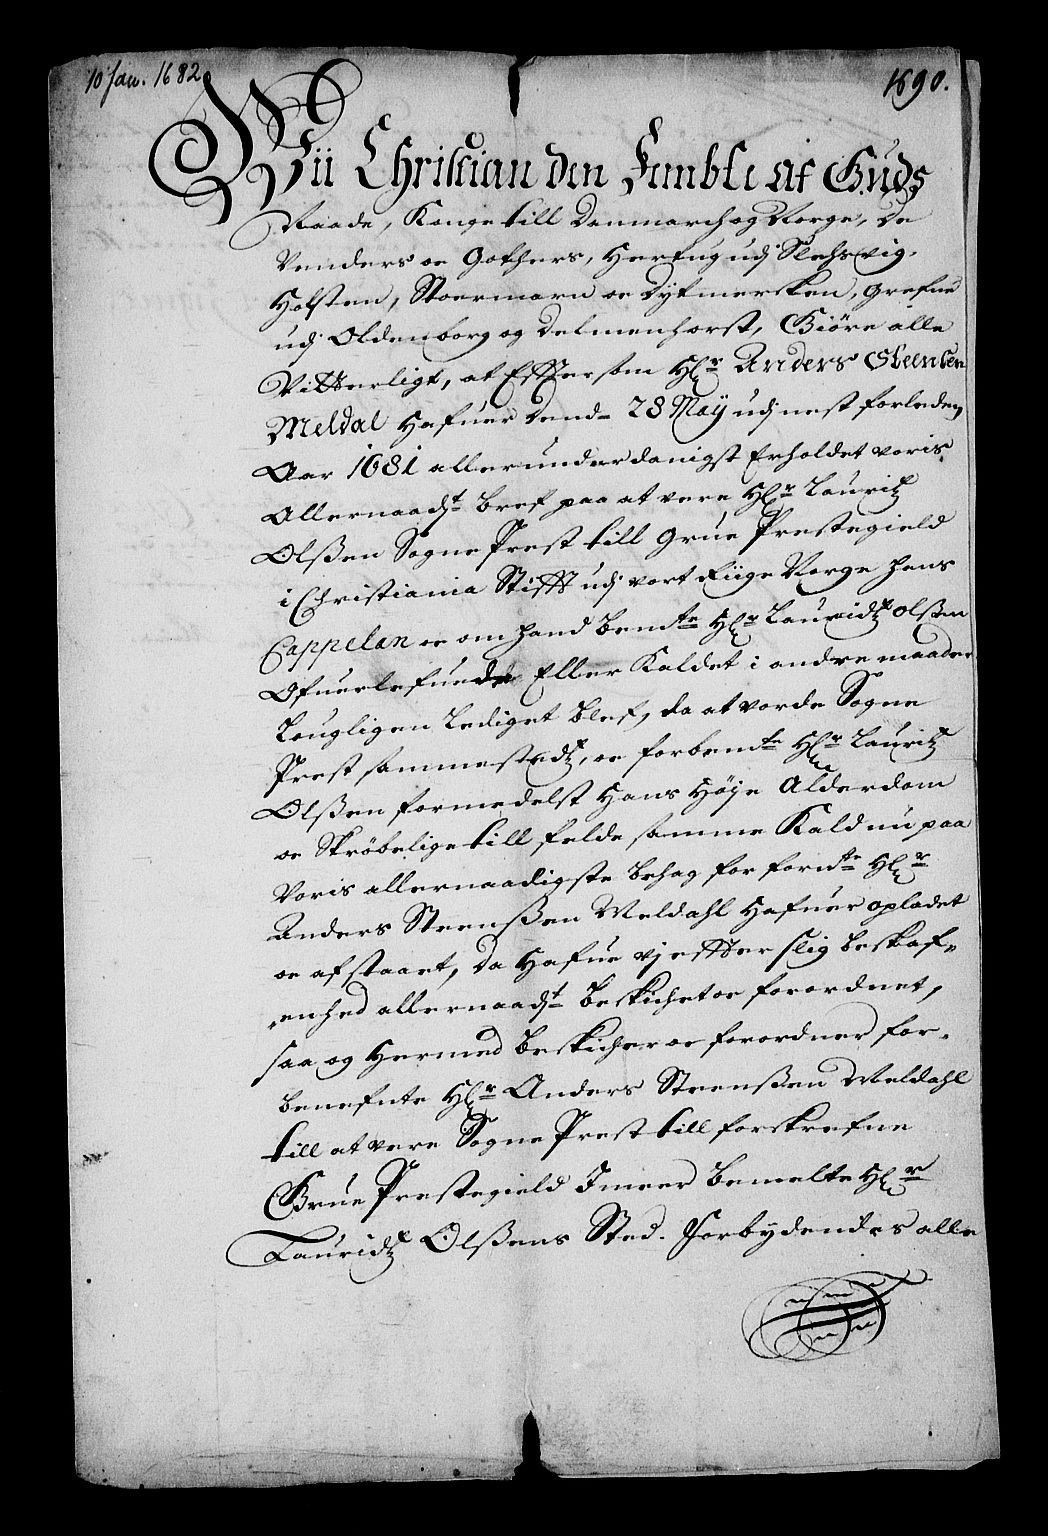 10 Jan. 1682.
1690.
Wii Christian den Fembte af Guds
Naade, Konge till Danmarch og Norge, De
Venders oc Gothers, Hertug udj Slehsvig,
Holsten, Stoermarn oc Dytmersken, Grefue
udj Oldenborg og Delmenhorst, Giöre alle
Vitterligt, at Effterson Hr Anders Steensen
Meldal Hafuer dend 28 Maÿ udj nest forleden
Aar 1681 allerunderdanigst Erholdet voris
Allernaadst bref paa at vere Hr Lauritz
Olßen Sogne Prest till Grue Prestegield
i Christiania Stifft udj vort Riige Norge hans
Cappelan oc om hand bemte Hr Lauridtz Olßen
Ofuerlefuede Eller Kaldet i andre maader
Lougligen Lediget blef, da at vorde Sogne
Prest sammestedtz, oc forbemte Hr Lauritz
Olßen formedelst Hans Höje Alderdom
oc Skröbelige tillfelde samme Kald nu paa
Voris allernaadigste behag for fornte Hr
Anders Steensßen Meldahl Hafuer opladet
oc afstaaet, Da Hafue vj effter slig beskaf-
enhed allernaadst beskichet oc forordnet,
saa og Hermed beskicher oc forordner for-
benefnte Hr Anders Steensßen Meldahl
till at vere Sogne Prest till forskrefne
Grue Prestegield I meer bemelte Hr
Lauridtz Olßens Sted. Forbydendes alle